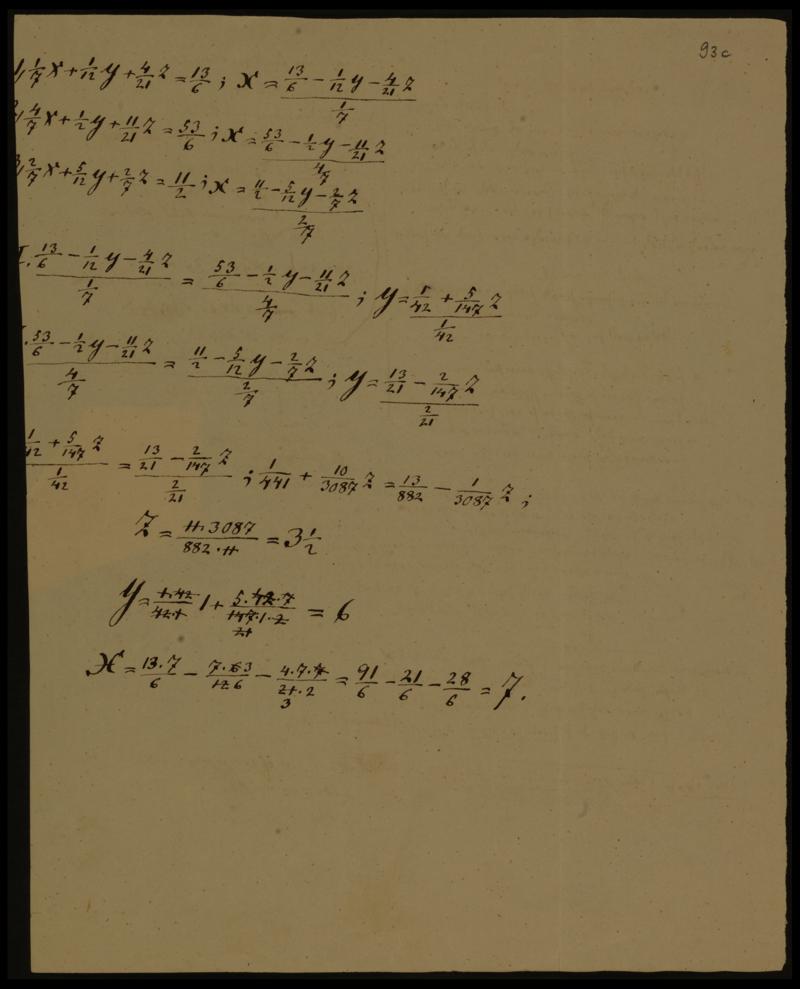 93c
1, 1/7 x + 1/12 y + 4/21 z = 13/6 ; x = (13/6 − 1/12 y − 4/21 z) / (1/7)
2, 4/7 x + 1/2 y + 11/21 z = 53/6 ; x = (53/6 − 1/2 y − 11/21 z) / (4/7)
3, 2/7 x + 5/12 y + 2/7 z = 11/2 ; x = (11/2 − 5/12 y − 2/7 z) / (2/7)
I. (13/6 − 1/12 y − 4/21 z) / (1/7) = (53/6 − 1/2 y − 11/21 z) / (4/7) ; y = (1/42 + 5/147 z) / (1/42)
(53/6 − 1/2 y − 11/21 z) / (4/7) = (11/2 − 5/12 y − 2/7 z) / (2/7) ; y = (13/21 − 2/147 z) / (2/21)
(1/42 + 5/147 z) / (1/42) = (13/21 − 2/147 z) / (2/21) ; 1/441 + 10/3087 z = 13/882 − 1/3087 z ;
z = (11.3087) / (882.11) = 3 1/2
y = (1.42) / (42.1) 1 + (5.42.7) / (147.1.2) 21 = 6
x = (13.7) / 6 − (7.63) / (12 6) − (4.7.7) / (21.2) 3 = 91/6 − 21/6 − 28/6 = 7.